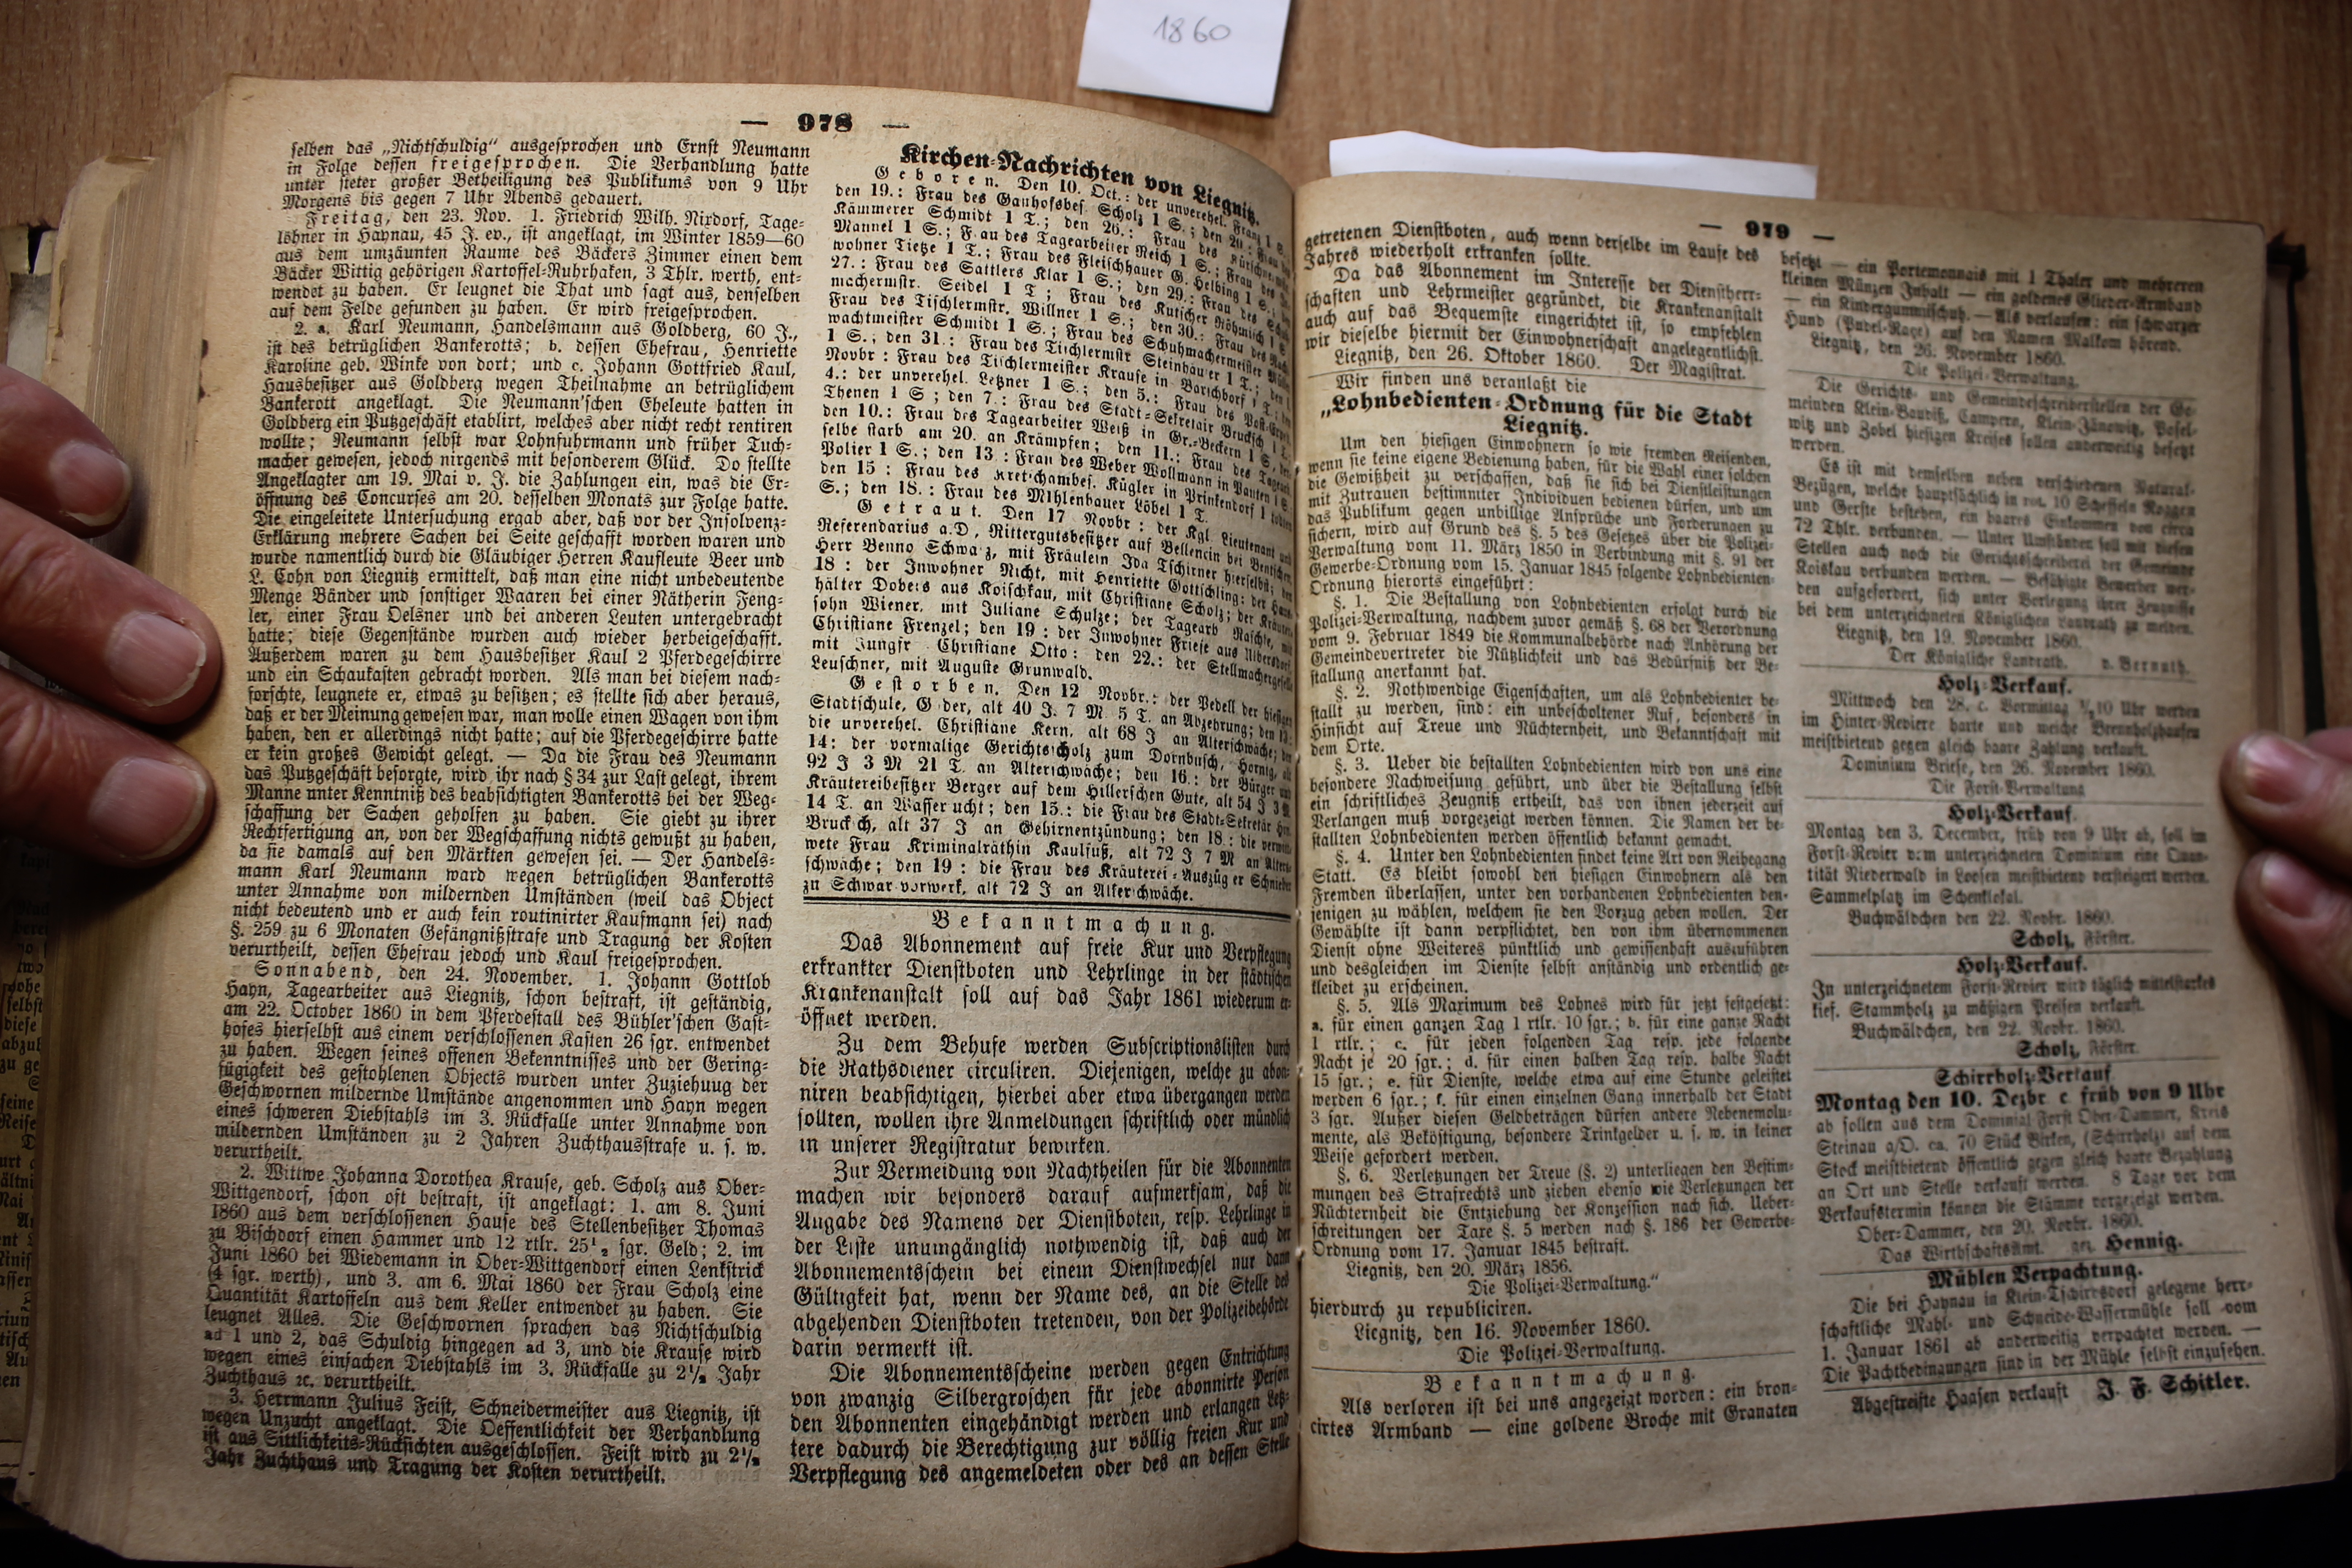 1860
— 978 —
selben das „Nichtschuldig“ ausgesprochen und Ernst Neumann
in Folge dessen freigesprochen. Die Verhandlung hatte
unter steter großer Betheiligung des Publikums von 9 Uhr
Morgens bis gegen 7 Uhr Abends gedauert.
Freitag, den 23. Nov. 1. Friedrich Wilh. Nixdorf, Tage-
löhner in Haynau, 45 J. ev., ist angeklagt, im Winter 1859—60
aus dem umzäunten Raume des Bäckers Zimmer einen dem
Bäcker Wittig gehörigen Kartoffel-Ruhrhaken, 3 Thlr. werth, ent-
wendet zu haben. Er leugnet die That und sagt aus, denselben
auf dem Felde gefunden zu haben. Er wird freigesprochen.
2. a. Karl Neumann, Handelsmann aus Goldberg, 60 J.,
ist des betrüglichen Bankerotts; b. dessen Ehefrau, Henriette
Karoline geb. Winke von dort; und c. Johann Gottfried Kaul,
Hausbesitzer aus Goldberg wegen Theilnahme an betrüglichem
Bankerott angeklagt. Die Neumann'schen Eheleute hatten in
Goldberg ein Putzgeschäft etablirt, welches aber nicht recht rentiren
wollte; Neumann selbst war Lohnfuhrmann und früher Tuch-
macher gewesen, jedoch nirgends mit besonderem Glück. Do stellte
Angeklagter am 19. Mai v. J. die Zahlungen ein, was die Er-
öffnung des Concurses am 20. desselben Monats zur Folge hatte.
Die eingeleitete Untersuchung ergab aber, daß vor der Insolvenz-
Erklärung mehrere Sachen bei Seite geschafft worden waren und
wurde namentlich durch die Gläubiger Herren Kaufleute Beer und
L. Cohn von Liegnitz ermittelt, daß man eine nicht unbedeutende
Menge Bänder und sonstiger Waaren bei einer Nätherin Feng-
ler, einer Frau Oelsner und bei anderen Leuten untergebracht
hatte; diese Gegenstände wurden auch wieder herbeigeschafft.
Außerdem waren zu dem Hausbesitzer Kaul 2 Pferdegeschirre
und ein Schaukasten gebracht worden. Als man bei diesem nach-
forschte, leugnete er, etwas zu besitzen; es stellte sich aber heraus,
daß er der Meinung gewesen war, man wolle einen Wagen von ihm
haben, den er allerdings nicht hatte; auf die Pferdegeschirre hatte
er kein großes Gewicht gelegt. — Da die Frau des Neumann
das Putzgeschäft besorgte, wird ihr nach § 34 zur Last gelegt, ihrem
Manne unter Kenntniß des beabsichtigten Bankerotts bei der Weg-
schaffung der Sachen geholfen zu haben. Sie giebt zu ihrer
Rechtfertigung an, von der Wegschaffung nichts gewußt zu haben,
da sie damals auf den Märkten gewesen sei. — Der Handels-
mann Karl Neumann ward wegen betrüglichen Bankerotts
unter Annahme von mildernden Umständen (weil das Object
nicht bedeutend und er auch kein routinirter Kaufmann sei) nach
§. 259 zu 6 Monaten Gefängnißstrafe und Tragung der Kosten
verurtheilt, dessen Ehefrau jedoch und Kaul freigesprochen.
Sonnabend, den 24. November. 1. Johann Gottlob
Hayn, Tagearbeiter aus Liegnitz, schon bestraft, ist geständig,
am 22. October 1860 in dem Pferdestall des Bühler'schen Gast-
hofes hierselbst aus einem verschlossenen Kasten 26 sgr. entwendet
zu haben. Wegen seines offenen Bekenntnisses und der Gering-
fügigkeit des gestohlenen Objects wurden unter Zuziehuug der
Geschwornen mildernde Umstände angenommen und Hayn wegen
eines schweren Diebstahls im 3. Rückfalle unter Annahme von
mildernden Umständen zu 2 Jahren Zuchthausstrafe u. s. w.
verurtheilt.
2. Wittwe Johanna Dorothea Krause, geb. Scholz aus Ober-
Wittgendorf, schon oft bestraft, ist angeklagt: 1. am 8. Juni
1860 aus dem verschlossenen Hause des Stellenbesitzer Thomas
zu Bischdorf einen Hammer und 12 rtlr. 25½ sgr. Geld; 2. im
Juni 1860 bei Wiedemann in Ober-Wittgendorf einen Lenkstrick
(4 sgr. werth), und 3. am 6. Mai 1860 der Frau Scholz eine
Quantität Kartoffeln aus dem Keller entwendet zu haben. Sie
leugnet Alles. Die Geschwornen sprachen das Nichtschuldig
ad 1 und 2, das Schuldig hingegen ad 3, und die Krause wird
wegen eines einfachen Diebstahls im 3. Rückfalle zu 2½ Jahr
Zuchthaus ꝛc. verurtheilt.
3. Herrmann Julius Feist, Schneidermeister aus Liegnitz, ist
wegen Unzucht angeklagt. Die Oeffentlichkeit der Verhandlung
ist aus Sittlichkeits-Rücksichten ausgeschlossen. Feist wird zu 2½
Jahr Zuchthaus und Tragung der Kosten verurtheilt.
Kirchen-Nachrichten von Liegnitz.
Geboren. Den 10. Oct.: der unverehel. Franz 1 S.
den 19.: Frau des Ganhofsbes. Scholz 1 S.; den 20.: Frau des
Kämmerer Schmidt 1 T.; den 26.: Frau des
Mannel 1 S.; F.au des Tagearbeiter Reich 1 S.; Frau des
wohner Tietze 1 T.; Frau des Fleischhauer G. Helbing 1 S.; den
27.: Frau des Sattlers Klar 1 S.; den 29.: Frau des
machermstr. Seidel 1 T; Frau des Kutscher Röhmisch 1
Frau des Tischlermstr. Willner 1 S.; den 30.: Frau des
wachtmeister Schmidt 1 S.; Frau des Schuhmachermeister
1 S.; den 31.: Frau des Tischlermstr Steinhäuer 1 T.; den
Novbr: Frau des Tischlermeister Krause in Barschdorf 1 T.; den
4.: der unverehel. Letzner 1 S.; den 5.: Frau des Post-Exped.
Thenen 1 S; den 7.: Frau des Stadt-Sekretair Brucksch 1 T.
den 10.: Frau des Tagearbeiter Weiß in Gr.-Beckern 1 S,
selbe starb am 20. an Krämpfen; den 11.: Frau des Tagearb.
Polier 1 S.; den 13.: Frau des Weber Wollmann in Panten 1 S.
den 15: Frau des Kretschambes. Kügler in Prinkendorf 1 todten
S.; den 18.: Frau des Mühlenbauer Löbel 1 T.
Getraut. Den 17 Novbr: der Kgl. Lieutenant und
Referendarius a.D, Rittergutsbesitzer auf Bellencin bei Bentschen,
Herr Benno Schwarz, mit Fräulein Ida Tschirner hierselbst; den
18: der Inwohner Nicht, mit Henriette Gottschling; der Haus-
hälter Dobers aus Koischkau, mit Christiane Scholz; der Kräuter-
sohn Wiener, mit Juliane Schulze; der Tagearb Raschke, mit
Christiane Frenzel; den 19: der Inwohner Friese aus Alberdorf
mit Jungfr Christiane Otto: den 22.: der Stellmachergesell
Leuschner, mit Auguste Grunwald.
Gestorben. Den 12 Novbr.: der Pedell der hiesigen
Stadtschule, G der, alt 40 J. 7 M 5 T. an Abzehrung; den 13.
die unverehel. Christiane Kern, alt 68 J an Altersschwäche; den
14: der vormalige Gerichtsscholz zum Dornbusch, Hornig, alt
92 J 3 M 21 T. an Altersschwäche; den 16.: der Bürger und
Kräutereibesitzer Berger auf dem Hillerschen Gute, alt 54 J 3 M
14 T. an Wassersucht; den 15.: die Frau des Stadt-Sekretär Hrn.
Brucksch, alt 37 J an Gehirnentzündung; den 18: die verwit-
wete Frau Kriminalräthin Kaulfuß, alt 72 J 7 M an Alters-
schwäche; den 19: die Frau des Kräuterei-Auszüger Schneider
zu Schwarzvorwerk, alt 72 J an Altersschwäche.
Bekanntmachung.
Das Abonnement auf freie Kur und Verpflegung
erkrankter Dienstboten und Lehrlinge in der städtischen
Krankenanstalt soll auf das Jahr 1861 wiederum er-
öffnet werden.
Zu dem Behufe werden Subscriptionslisten durch
die Rathsdiener circuliren. Diejenigen, welche zu abon-
niren beabsichtigen, hierbei aber etwa übergangen werden
sollten, wollen ihre Anmeldungen schriftlich oder mündlich
in unserer Registratur bewirken.
Zur Vermeidung von Nachtheilen für die Abonnenten
machen wir besonders darauf aufmerksam, daß die
Angabe des Namens der Dienstboten, resp. Lehrlinge in
der Liste unumgänglich nothwendig ist, daß auch der
Abonnementsschein bei einem Dienstwechsel nur dann
Gültigkeit hat, wenn der Name des, an die Stelle des
abgehenden Dienstboten tretenden, von der Polizeibehörde
darin vermerkt ist.
Die Abonnementsscheine werden gegen Entrichtung
von zwanzig Silbergroschen für jede abonnirte Person
den Abonnenten eingehändigt werden und erlangen Letz-
tere dadurch die Berechtigung zur völlig freien Kur und
Verpflegung des angemeldeten oder des an dessen Stelle
— 979 —
getretenen Dienstboten, auch wenn derselbe im Laufe des
Jahres wiederholt erkranken sollte.
Da das Abonnement im Interesse der Dienstherr-
schaften und Lehrmeister gegründet, die Krankenanstalt
auch auf das Bequemste eingerichtet ist, so empfehlen
wir dieselbe hiermit der Einwohnerschaft angelegentlichst.
Liegnitz, den 26. Oktober 1860. Der Magistrat.
Wir finden uns veranlaßt die
„Lohnbedienten-Ordnung für die Stadt
Liegnitz.
Um den hiesigen Einwohnern so wie fremden Reisenden,
wenn sie keine eigene Bedienung haben, für die Wahl einer solchen
die Gewißheit zu verschaffen, daß sie sich bei Dienstleistungen
mit Zutrauen bestimmter Individuen bedienen dürfen, und um
das Publikum gegen unbillige Ansprüche und Forderungen zu
sichern, wird auf Grund des §. 5 des Gesetzes über die Polizei-
Verwaltung vom 11. März 1850 in Verbindung mit §. 91 der
Gewerbe-Ordnung vom 15. Januar 1845 folgende Lohnbedienten-
Ordnung hierorts eingeführt:
§. 1. Die Bestallung von Lohnbedienten erfolgt durch die
Polizei-Verwaltung, nachdem zuvor gemäß §. 68 der Verordnung
vom 9. Februar 1849 die Kommunalbehörde nach Anhörung der
Gemeindevertreter die Nützlichkeit und das Bedürfniß der Be-
stallung anerkannt hat.
§. 2. Nothwendige Eigenschaften, um als Lohnbedienter be-
stallt zu werden, sind: ein unbescholtener Ruf, besonders in
Hinsicht auf Treue und Nüchternheit, und Bekanntschaft mit
dem Orte.
§. 3. Ueber die bestallten Lohnbedienten wird von uns eine
besondere Nachweisung geführt, und über die Bestallung selbst
ein schriftliches Zeugniß ertheilt, das von ihnen jederzeit auf
Verlangen muß vorgezeigt werden können. Die Namen der be-
stallten Lohnbedienten werden öffentlich bekannt gemacht.
§. 4. Unter den Lohnbedienten findet keine Art von Reihegang
Statt. Es bleibt sowohl den hiesigen Einwohnern als den
Fremden überlassen, unter den vorhandenen Lohnbedienten den-
jenigen zu wählen, welchem sie den Vorzug geben wollen. Der
Gewählte ist dann verpflichtet, den von ihm übernommenen
Dienst ohne Weiteres pünktlich und gewissenhaft auszuführen
und desgleichen im Dienste selbst anständig und ordentlich ge-
kleidet zu erscheinen.
§. 5. Als Maximum des Lohnes wird für jetzt festgesetzt:
a. für einen ganzen Tag 1 rtlr. 10 sgr.; b. für eine ganze Nacht
1 rtlr.; c. für jeden folgenden Tag resp. jede folgende
Nacht je 20 sgr.; d. für einen halben Tag resp. halbe Nacht
15 sgr.; e. für Dienste, welche etwa auf eine Stunde geleistet
werden 6 sgr.; f. für einen einzelnen Gang innerhalb der Stadt
3 sgr. Außer diesen Geldbeträgen dürfen andere Nebenemolu-
mente, als Beköstigung, besondere Trinkgelder u. s. w. in keiner
Weise gefordert werden.
§. 6. Verletzungen der Treue (§. 2) unterliegen den Bestim-
mungen des Strafrechts und ziehen ebenso wie Verletzungen der
Nüchternheit die Entziehung der Konzession nach sich. Ueber-
schreitungen der Taxe §. 5 werden nach §. 186 der Gewerbe-
Ordnung vom 17. Januar 1845 bestraft.
Liegnitz, den 20. März 1856.
Die Polizei-Verwaltung.“
hierdurch zu republiciren.
Liegnitz, den 16. November 1860.
Die Polizei-Verwaltung.
Bekanntmachung.
Als verloren ist bei uns angezeigt worden: ein bron-
cirtes Armband — eine goldene Broche mit Granaten
besetzt — ein Portemonnais mit 1 Thaler und mehreren
kleinen Münzen Inhalt — ein goldenes Glieder-Armband
— ein Kindergummischuh. — Als verlaufen: ein schwarzer
Hund (Pudel-Raçe) auf den Namen Malkom hörend.
Liegnitz, den 26. November 1860.
Die Polizei-Verwaltung.
Die Gerichts- und Gemeindeschreiberstellen der Ge-
meinden Klein-Baudiß, Campern, Klein-Jänowitz, Posel-
witz und Zobel hiesigen Kreises sollen anderweitig besetzt
werden.
Es ist mit demselben neben verschiedenen Natural-
Bezügen, welche hauptsächlich in rot. 10 Scheffeln Roggen
und Gerste bestehen, ein baares Einkommen von circa
72 Thlr. verbunden. — Unter Umständen soll mit diesen
Stellen auch noch die Gerichtsschreiberei der Gemeinde
Koiskau verbunden werden. — Befähigte Bewerber wer-
den aufgefordert, sich unter Vorlegung ihrer Zeugnisse
bei dem unterzeichneten Königlichen Landrath zu melden.
Liegnitz, den 19. November 1860.
Der Königliche Landrath. v. Bernuth.
Holz-Verkauf.
Mittwoch den 28. c. Vormittag ½10 Uhr werden
im Hinter-Reviere harte und weiche Brennholzhaufen
meistbietend gegen gleich baare Zahlung verkauft.
Dominium Briese, den 26. November 1860.
Die Forst-Verwaltung
Holz-Verkauf.
Montag den 3. December, früh von 9 Uhr ab, soll im
Forst-Revier vom unterzeichneten Dominium eine Quan-
tität Niederwald in Loosen meistbietend versteigert werden.
Sammelplatz im Schenklokal.
Buchwäldchen den 22. Novbr. 1860.
Scholz, Förster.
Holz-Verkauf.
In unterzeichnetem Forst-Revier wird täglich mittelstarkes
kief. Stammholz zu mäßigen Preisen verkauft.
Buchwäldchen, den 22. Novbr. 1860.
Scholz, Förster.
Schirrholz-Verkauf
Montag den 10. Dezbr c früh von 9 Uhr
ab sollen aus dem Dominial Forst Ober-Dammer, Kreis
Steinau a/O. ca. 70 Stück Birken, (Schirrholz) auf dem
Stock meistbietend öffentlich gegen gleich baare Bezahlung
an Ort und Stelle verkauft werden. 8 Tage vor dem
Verkaufstermin können die Stämme vorgezeigt werden.
Ober-Dammer, den 20. Novbr. 1860.
Das Wirthschaftsamt. gez. Hennig.
Mühlen Verpachtung.
Die bei Haynau in Klein-Tschirbsdorf gelegene herr-
schaftliche Mahl- und Schneide-Wassermühle soll vom
1. Januar 1861 ab anderweitig verpachtet werden. —
Die Pachtbedingungen sind in der Mühle selbst einzusehen.
Abgestreifte Haasen verkauft J. F. Schitler.